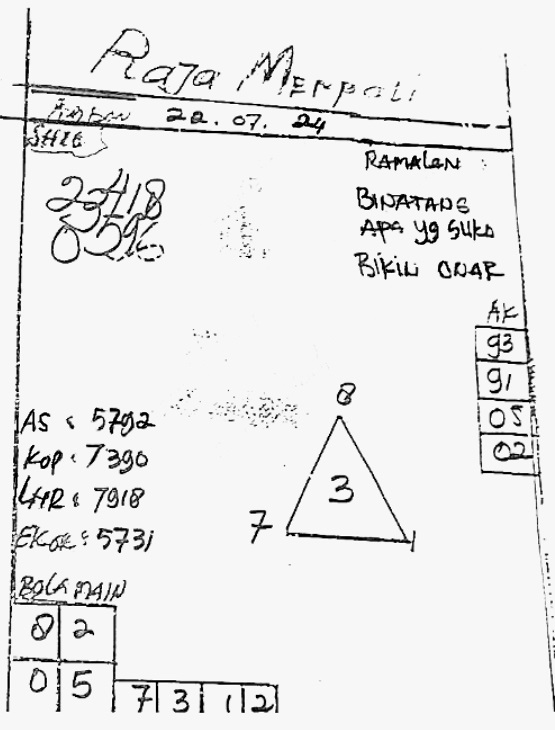 Raja Merpati
22.07.24
RAMALAN :
BINATANG
APA Yg SUKA
BIKIN ONAR
AK
93
91
05
02
8
3
7 1
AS : 5792
KOP : 7390
5731
BOLA MAIN
8 2
0 5
7 3 1 2